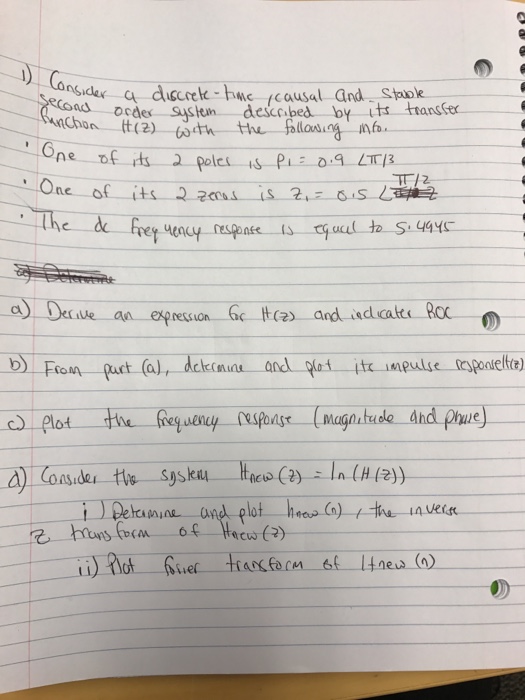 1) Consider a discrete-time, causal and stable
second order system described by its transfer
function H(z) with the following info.
• One of its 2 poles is P1 = 0.9 ∠π/3
π/2
• One of its 2 zeros is Z1 = 0.5 ∠
• The dc frequency response is equal to 5.4945
a) Determine
a) Derive an expression for H(z) and indicates ROC
b) From part (a), determine and plot its impulse response h(z)
c) Plot the frequency response (magnitude and phase)
d) Consider the system Hnew(z) = ln(H(z))
i) Determine and plot hnew(n), the inverse
z transform of Hnew(z)
ii) Plot forier transform of Hnew(n)